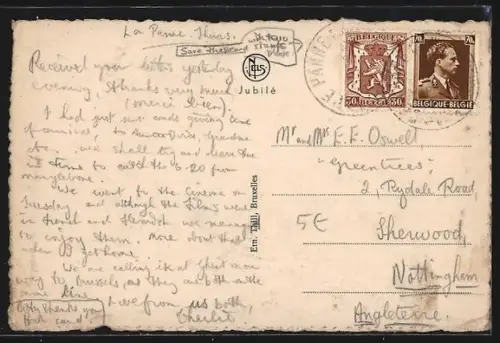 La Panne. Thurs.
Save the card
with two
stamps
please
Received your letters yesterday
evening, thanks very much
I had just sent cards giving time
of arrival, to
also, we shall try and leave
in time to catch the 5-20 from
Marylebone.
We went to the cinema on
Tuesday and although the films were
in French and Flemish we managed
to enjoy them. More about that
when we get home.
We are calling in at Ghent on our
way to Brussels, as they are both on the
line
Love from us both,
Jubilé
Ern. Thill, Bruxelles
BELGIQUE
30 BELGIE 30
70c 70c
BELGIQUE-BELGIE
LA PANNE
Mr and Mrs E. F. Oswell
"Greentrees",
2, Rydale Road,
5€
Sherwood,
Nottingham
Angleterre.